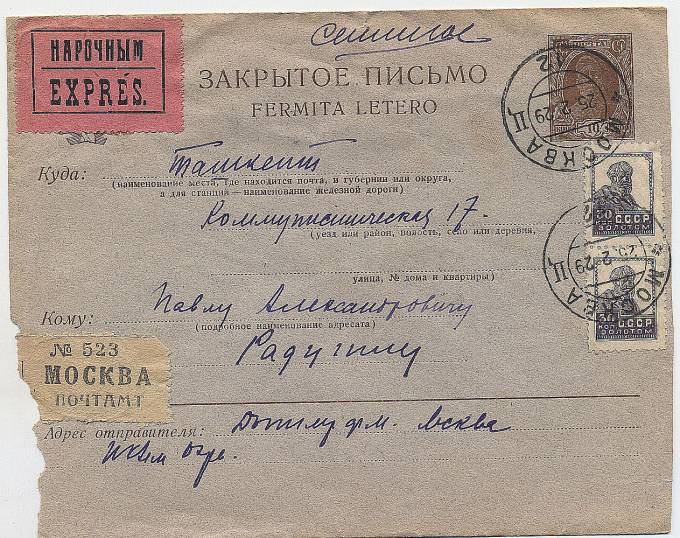 НАРОЧНЫМ
EXPRÈS.
ЗАКРЫТОЕ ПИСЬМО
FERMITA LETERO
ПОЧТА
10
МОСКВА 12
25 2 29
Ц
Куда: Ташкент
(наименование места, где находится почта, и губернии или округа,
а для станции — наименование железной дороги)
Коммунистическая 17.
(уезд или район, волость, село или деревня,
улица, № дома и квартиры)
30 КОП СССР
ЗОЛОТОМ
МОСКВА
29
Ц
КОП СССР
ЗОЛОТОМ
Кому: Павлу Александровичу
(подробное наименование адресата)
Радугину
№ 523
МОСКВА
ПОЧТАМТ
Адрес отправителя: Москва